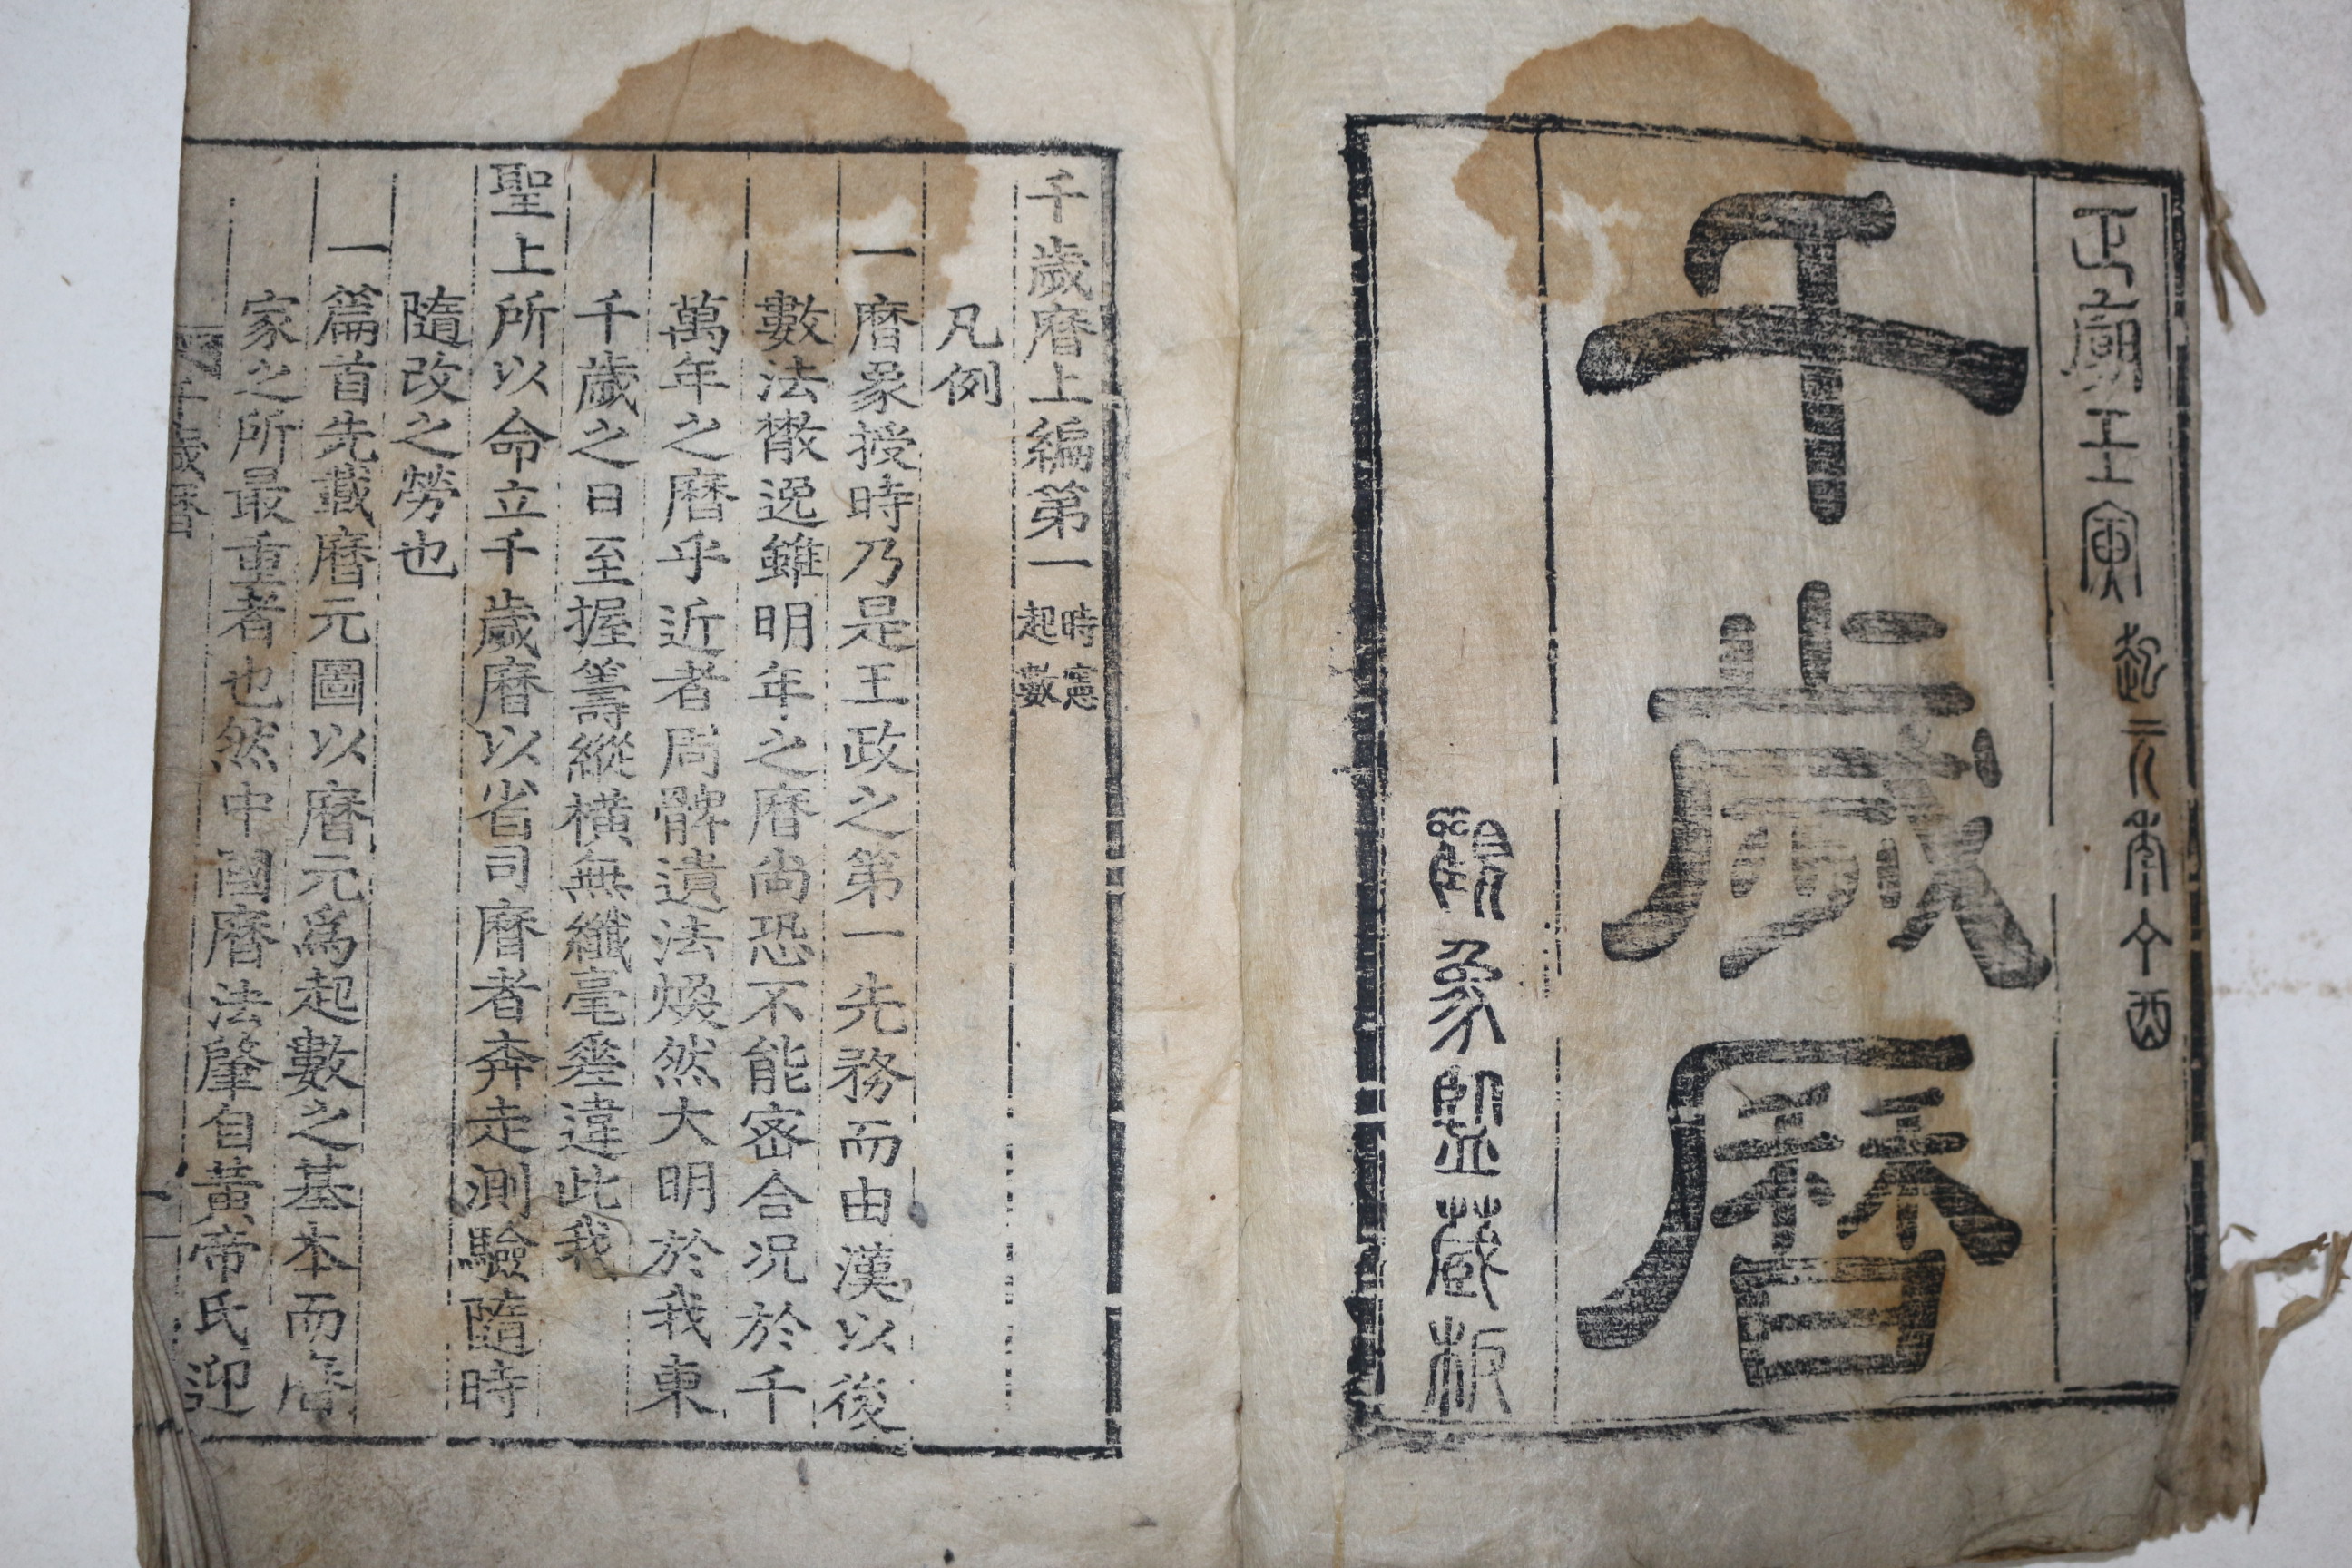 正廟壬寅起元年丁酉
千歲曆
觀象監藏板
千歲曆上編第一 時憲起數
凡例
一曆象授時乃是王政之第一先務而由漢以後
數法散逸雖明年之曆尚恐不能密合况於千
萬年之曆乎近者周髀遺法煥然大明於我東
千歲之日至握籌縱橫無纖毫差違此我
聖上所以命立千歲曆以省司曆者奔走測驗隨時
隨改之勞也
一篇首先載曆元圖以曆元爲起數之基本而曆
家之所最重者也然中國曆法肇自黃帝氏迎
千歲曆